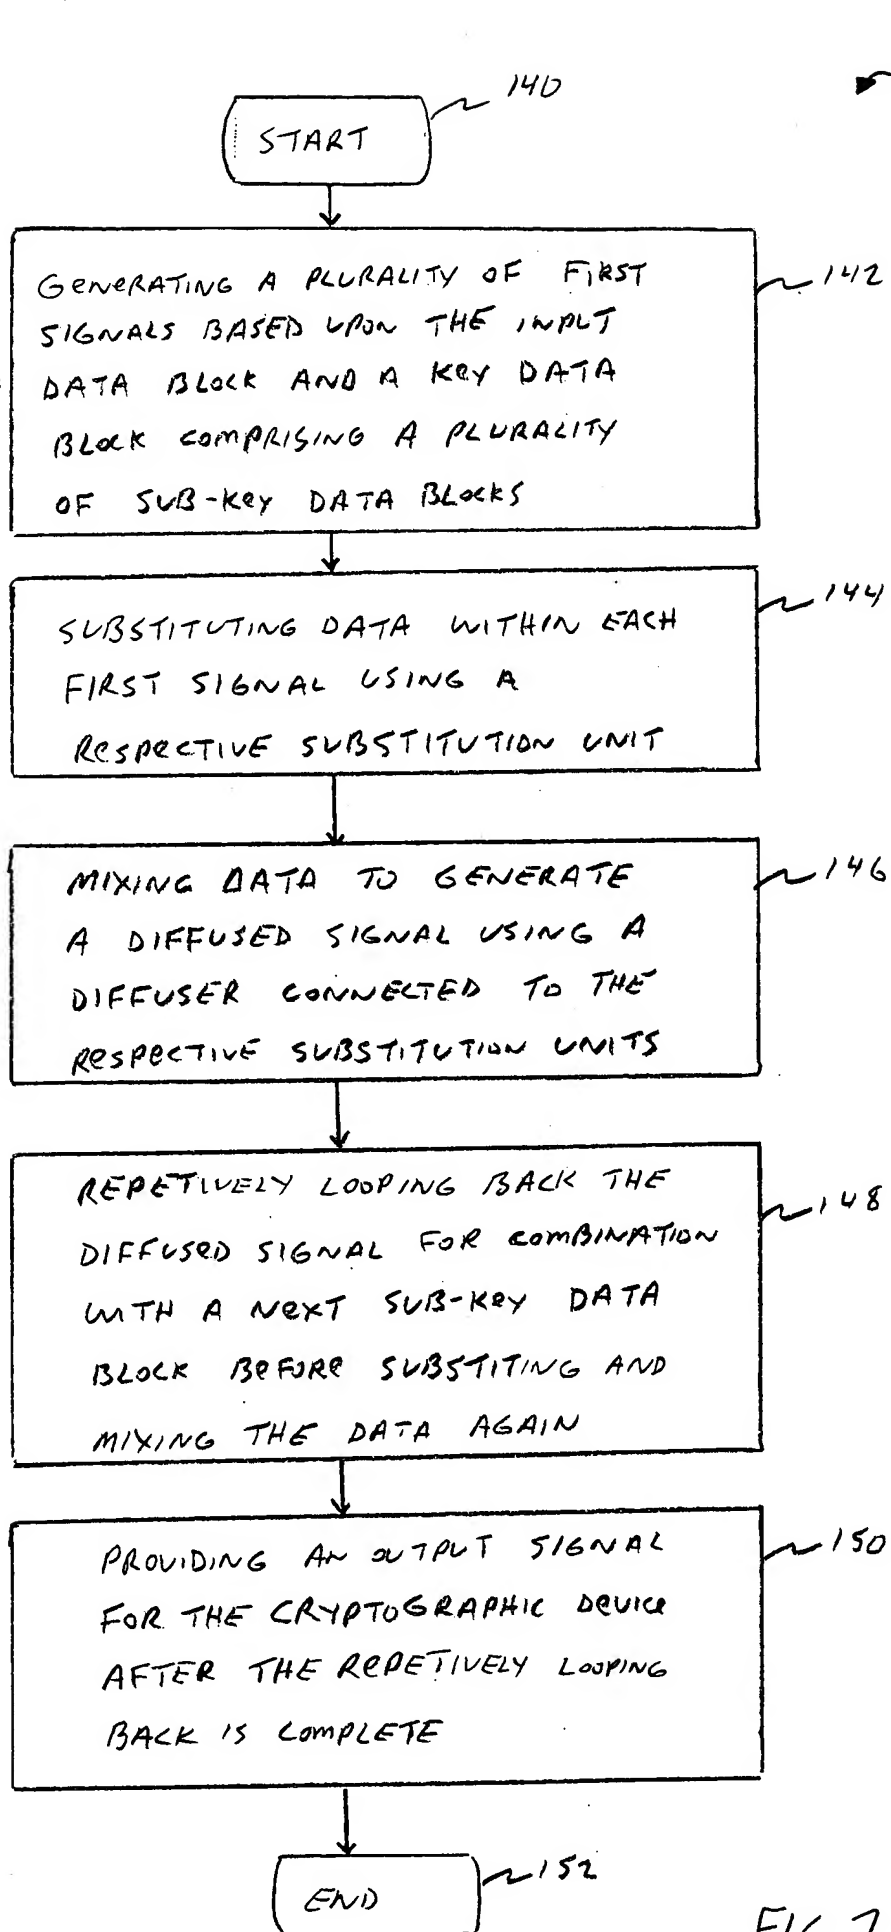 140
START
142
GENERATING A PLURALITY OF FIRST
SIGNALS BASED UPON THE INPUT
DATA BLOCK AND A KEY DATA
BLOCK COMPRISING A PLURALITY
OF SUB-KEY DATA BLOCKS
144
SUBSTITUTING DATA WITHIN EACH
FIRST SIGNAL USING A
RESPECTIVE SUBSTITUTION UNIT
146
MIXING DATA TO GENERATE
A DIFFUSED SIGNAL USING A
DIFFUSER CONNECTED TO THE
RESPECTIVE SUBSTITUTION UNITS
148
REPETIVELY LOOPING BACK THE
DIFFUSED SIGNAL FOR COMBINATION
WITH A NEXT SUB-KEY DATA
BLOCK BEFORE SUBSTITING AND
MIXING THE DATA AGAIN
150
PROVIDING AN OUTPUT SIGNAL
FOR THE CRYPTOGRAPHIC DEVICE
AFTER THE REPETIVELY LOOPING
BACK IS COMPLETE
152
END
FIG.